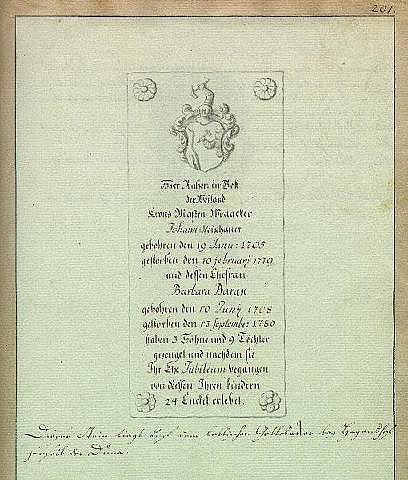 201.
Hier Ruhen in Gott
der Weiland
Krons Masten Wraacker
Johann Steinhauer
gebohren den 19 Janu: 1705
gestorben den 10 februarj 1779
und dessen Ehefrau
Barbara Baran
gebohren den 10 Junÿ 1708
gestorben den 13 september 1780
haben 3 Söhne und 9 Töchter
gezeuget und nachdem sie
Ihr Ehe Jubileum begangen
von diesen Ihren kindern
24 Enckel erlebet.
Dieser Stein liegt auf dem
jenseit der Düna.